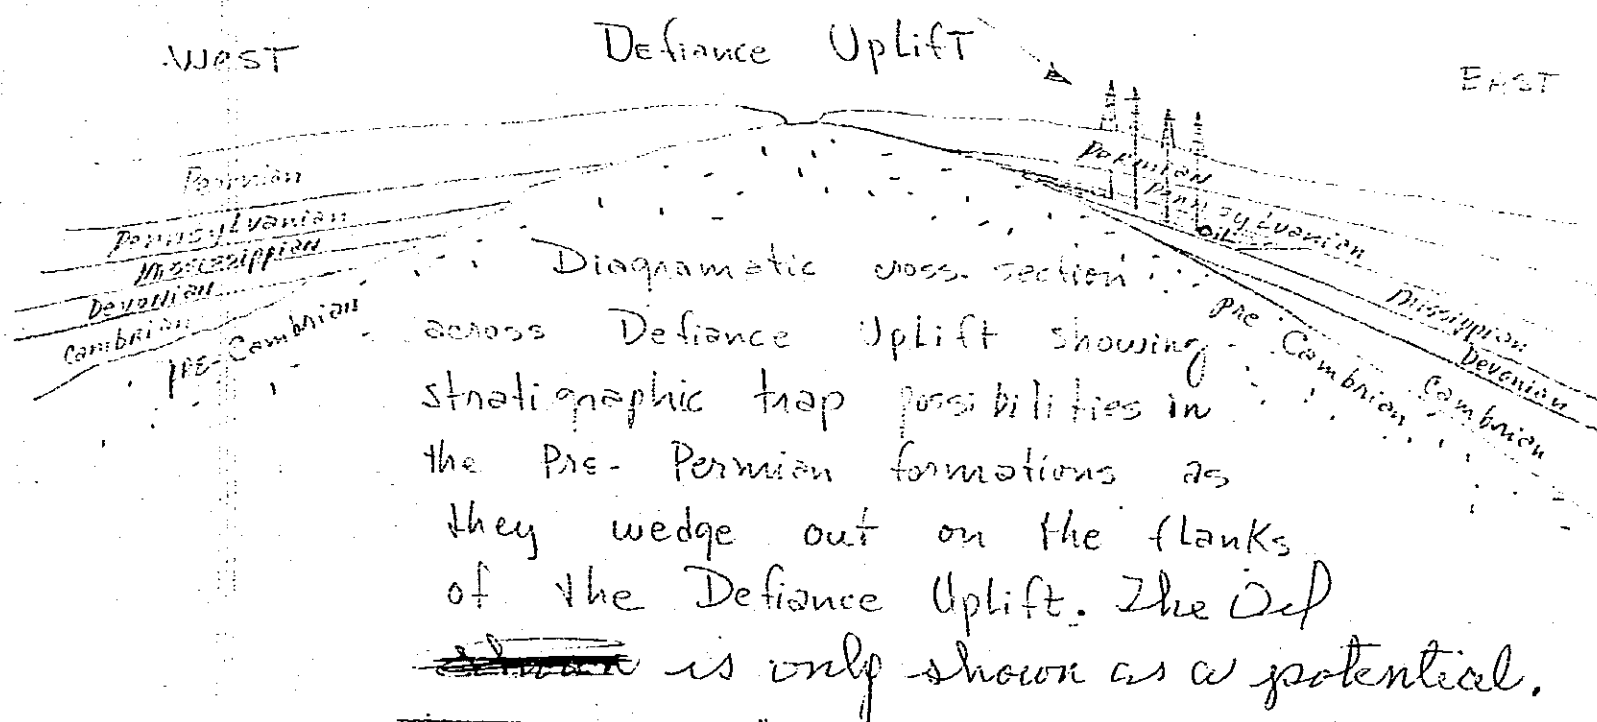 West
Defiance Uplift
East
Permian
Pennsylvanian
Mississippian
Devonian
Cambrian
Pre-Cambrian
Permian
Pennsylvanian
Oil
Missippian
Devonian
Cambrian
Pre Cambrian
Diagramatic cross-section
across Defiance Uplift showing
stratigraphic trap possibilities in
the Pre-Permian formations as
they wedge out on the flanks
of the Defiance Uplift. The Oil
is only shown as a potential.